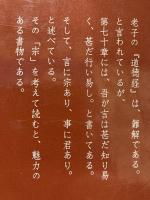 老子の『道徳経』は、難解である。
と言われているが、
第七十章には、吾が言は甚だ知り易
く、甚だ行い易し。と書いてある。
そして、言に宗あり、事に君あり。
と述べている。
その「宗」を考えて読むと、魅力の
ある書物である。